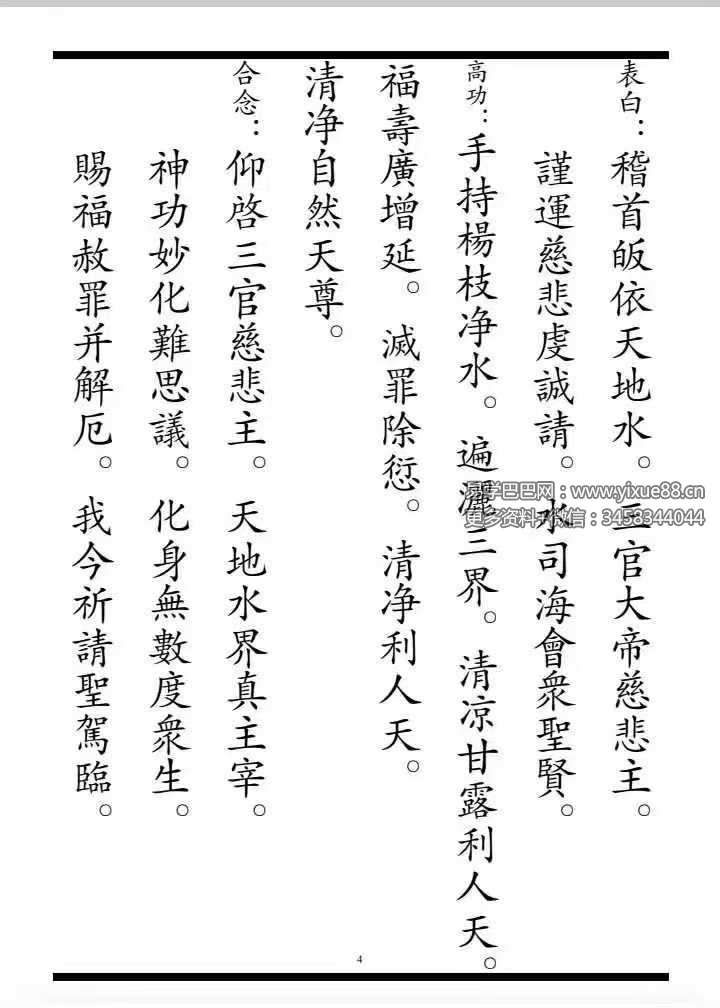 表白：稽首皈依天地水。三官大帝慈悲主。
謹運慈悲虔誠請。水司海會衆聖賢。
高功：手持楊枝净水。遍灑三界。清凉甘露利人天。
福壽廣增延。滅罪除愆。清净利人天。
清净自然天尊。
合念：仰啓三官慈悲主。天地水界真主宰。
神功妙化難思議。化身無數度衆生。
賜福赦罪并解厄。我今祈請聖駕臨。
易学巴巴网：www.yixue88.cn
更多资料+微信：3458344044
4